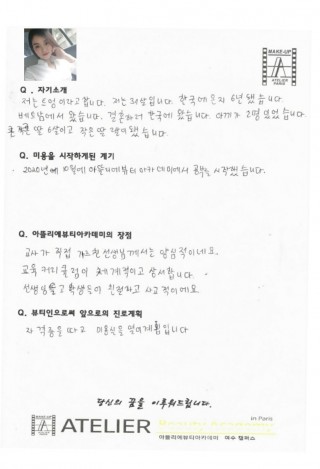 MAKE-UP
ATELIER
PARIS
Q . 자기소개
저는 트엉이라고합니다. 저는 31살입니다. 한국에 온지 6년 됐습니다.
베트남에서 왔습니다. 결혼하러 한국에 왔습니다. 아기가 2명 있었습니다
큰 딸 6살이고 작은딸 됐습니다.
Q . 미용을 시작하게된 계기
· 2020년에 10월에 아뜰리에뷰티아카데미에서 공부를 시작했습니다.
Q. 아뜰리에뷰티아카데미의 장점
교사가 직접 가르친 선생님께서는 양심적이네요.
교육 커리큘럼이 체계적이고 상세합니다.
선생님들고 학생들이 친절하고 사교적이에요.
Q. 뷰티인으로써 앞으로의 진로계획
자격증을 따고 미용실을 열 계획입니다
당신의 꿈을 이루워드립니다.
MAKE-UP
ATELIER
PARIS
ATELIER
in Paris
아뜰리에뷰티아카데미 여수 캠퍼스